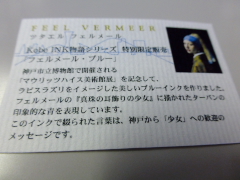 FEEL VERMEER
フヰエル フェルメール
Kobe INK物語シリーズ 特別限定販売
「フェルメール・ブルー」
神戸市立博物館で開催される
「マウリッツハイス美術館展」を記念して、
ラピスラズリをイメージした美しいブルーインクを作りました。
フェルメールの『真珠の耳飾りの少女』に描かれたターバンの
印象的な青を表現しています。
このインクで綴られた言葉は、神戸から「少女」への歓迎の
メッセージです。